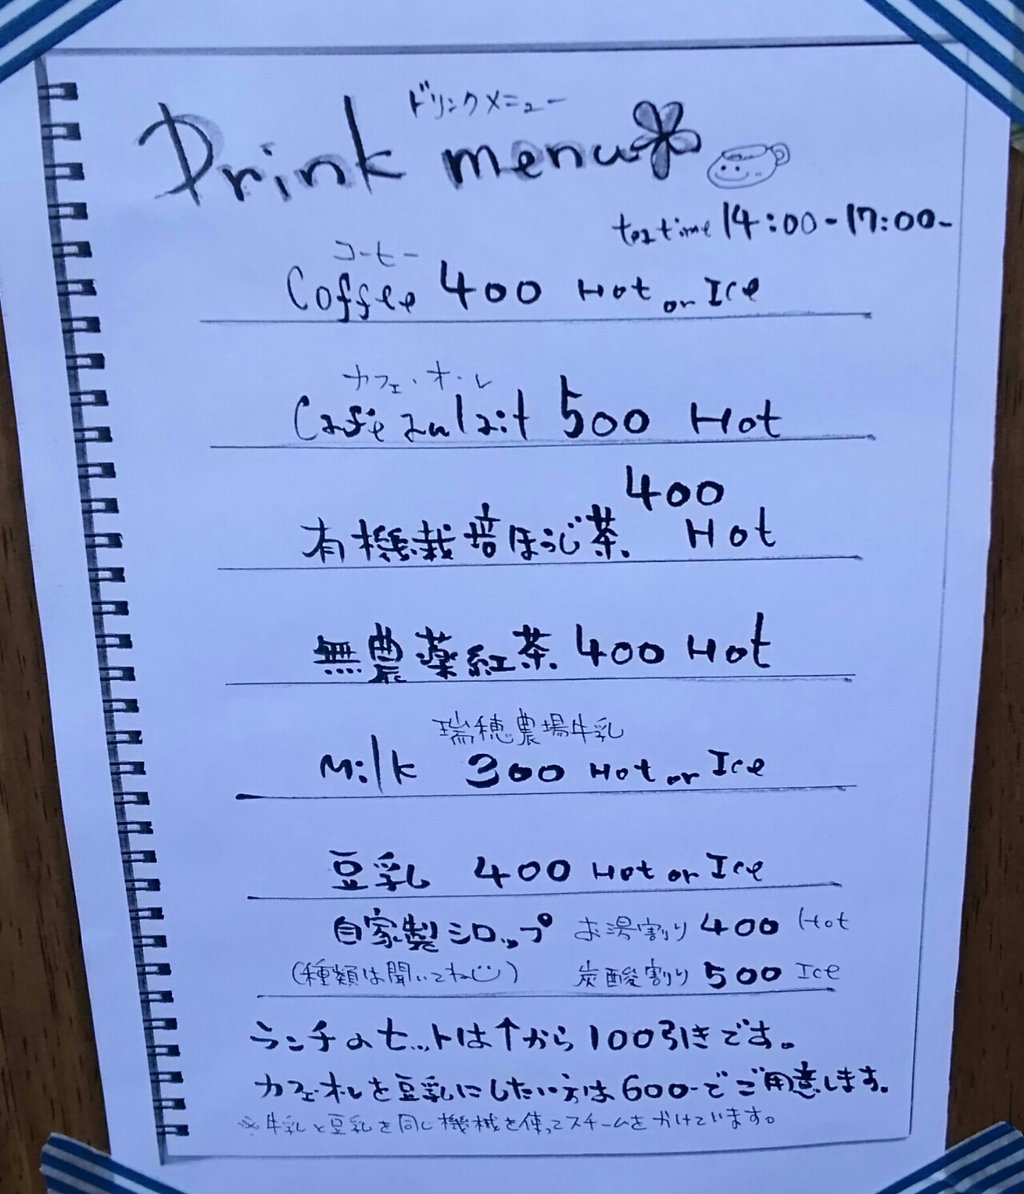 ドリンクメニュー
Drink menu
tea time 14:00-17:00-
コーヒー
Coffee 400 Hot or Ice
カフェ・オ・レ
Cafe au lait 500 Hot
400
有機栽培ほうじ茶 Hot
無農薬紅茶 400 Hot
瑞穂農場牛乳
Milk 300 Hot or Ice
豆乳 400 Hot or Ice
自家製シロップ お湯割り 400 Hot
(種類は聞いてね) 炭酸割り 500 Ice
ランチのセットは↑から100引きです。
カフェ・オレを豆乳にしたい方は600-でご用意します。
※牛乳と豆乳を同じ機械を使ってスチームをかけています。